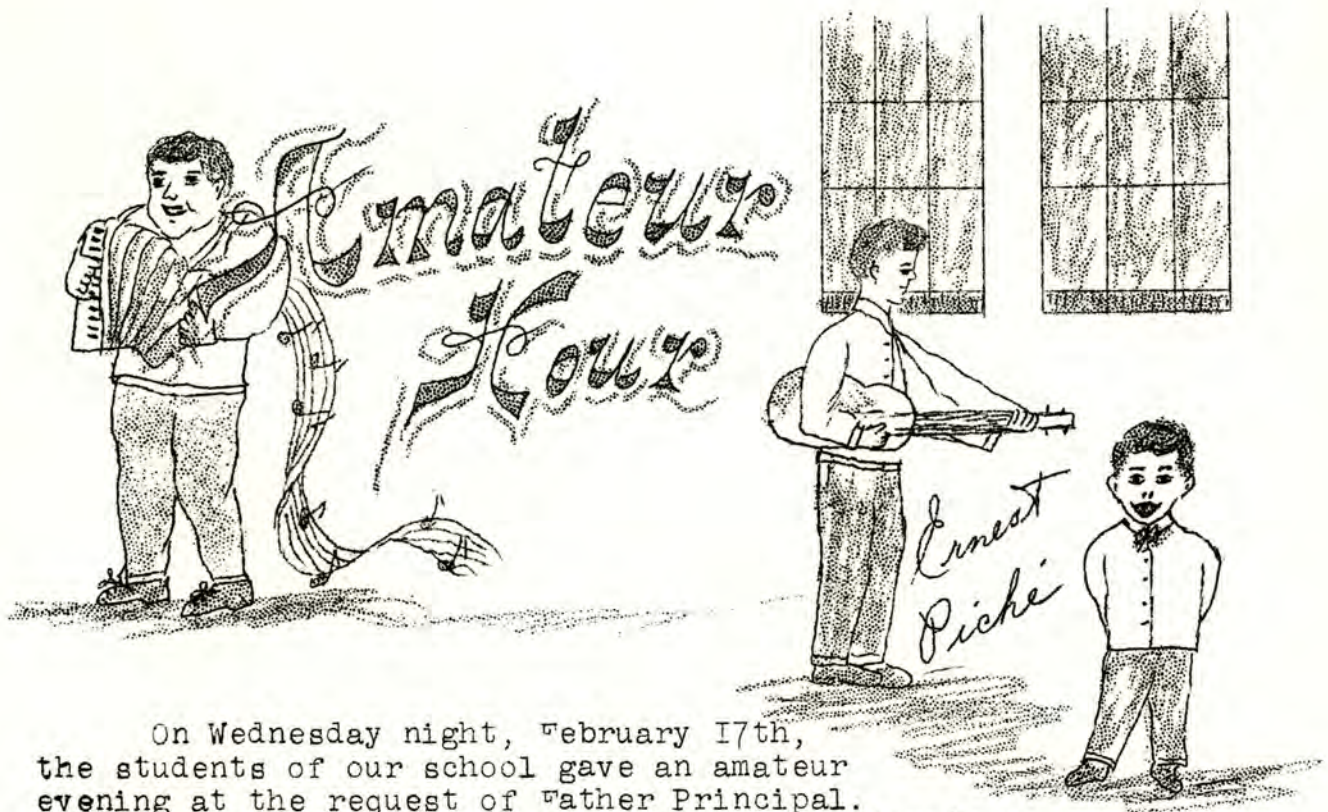 Amateur
Hour
Ernest
Piché
On Wednesday night, February I7th,
the students of our school gave an amateur
evening at the request of Father Principal.